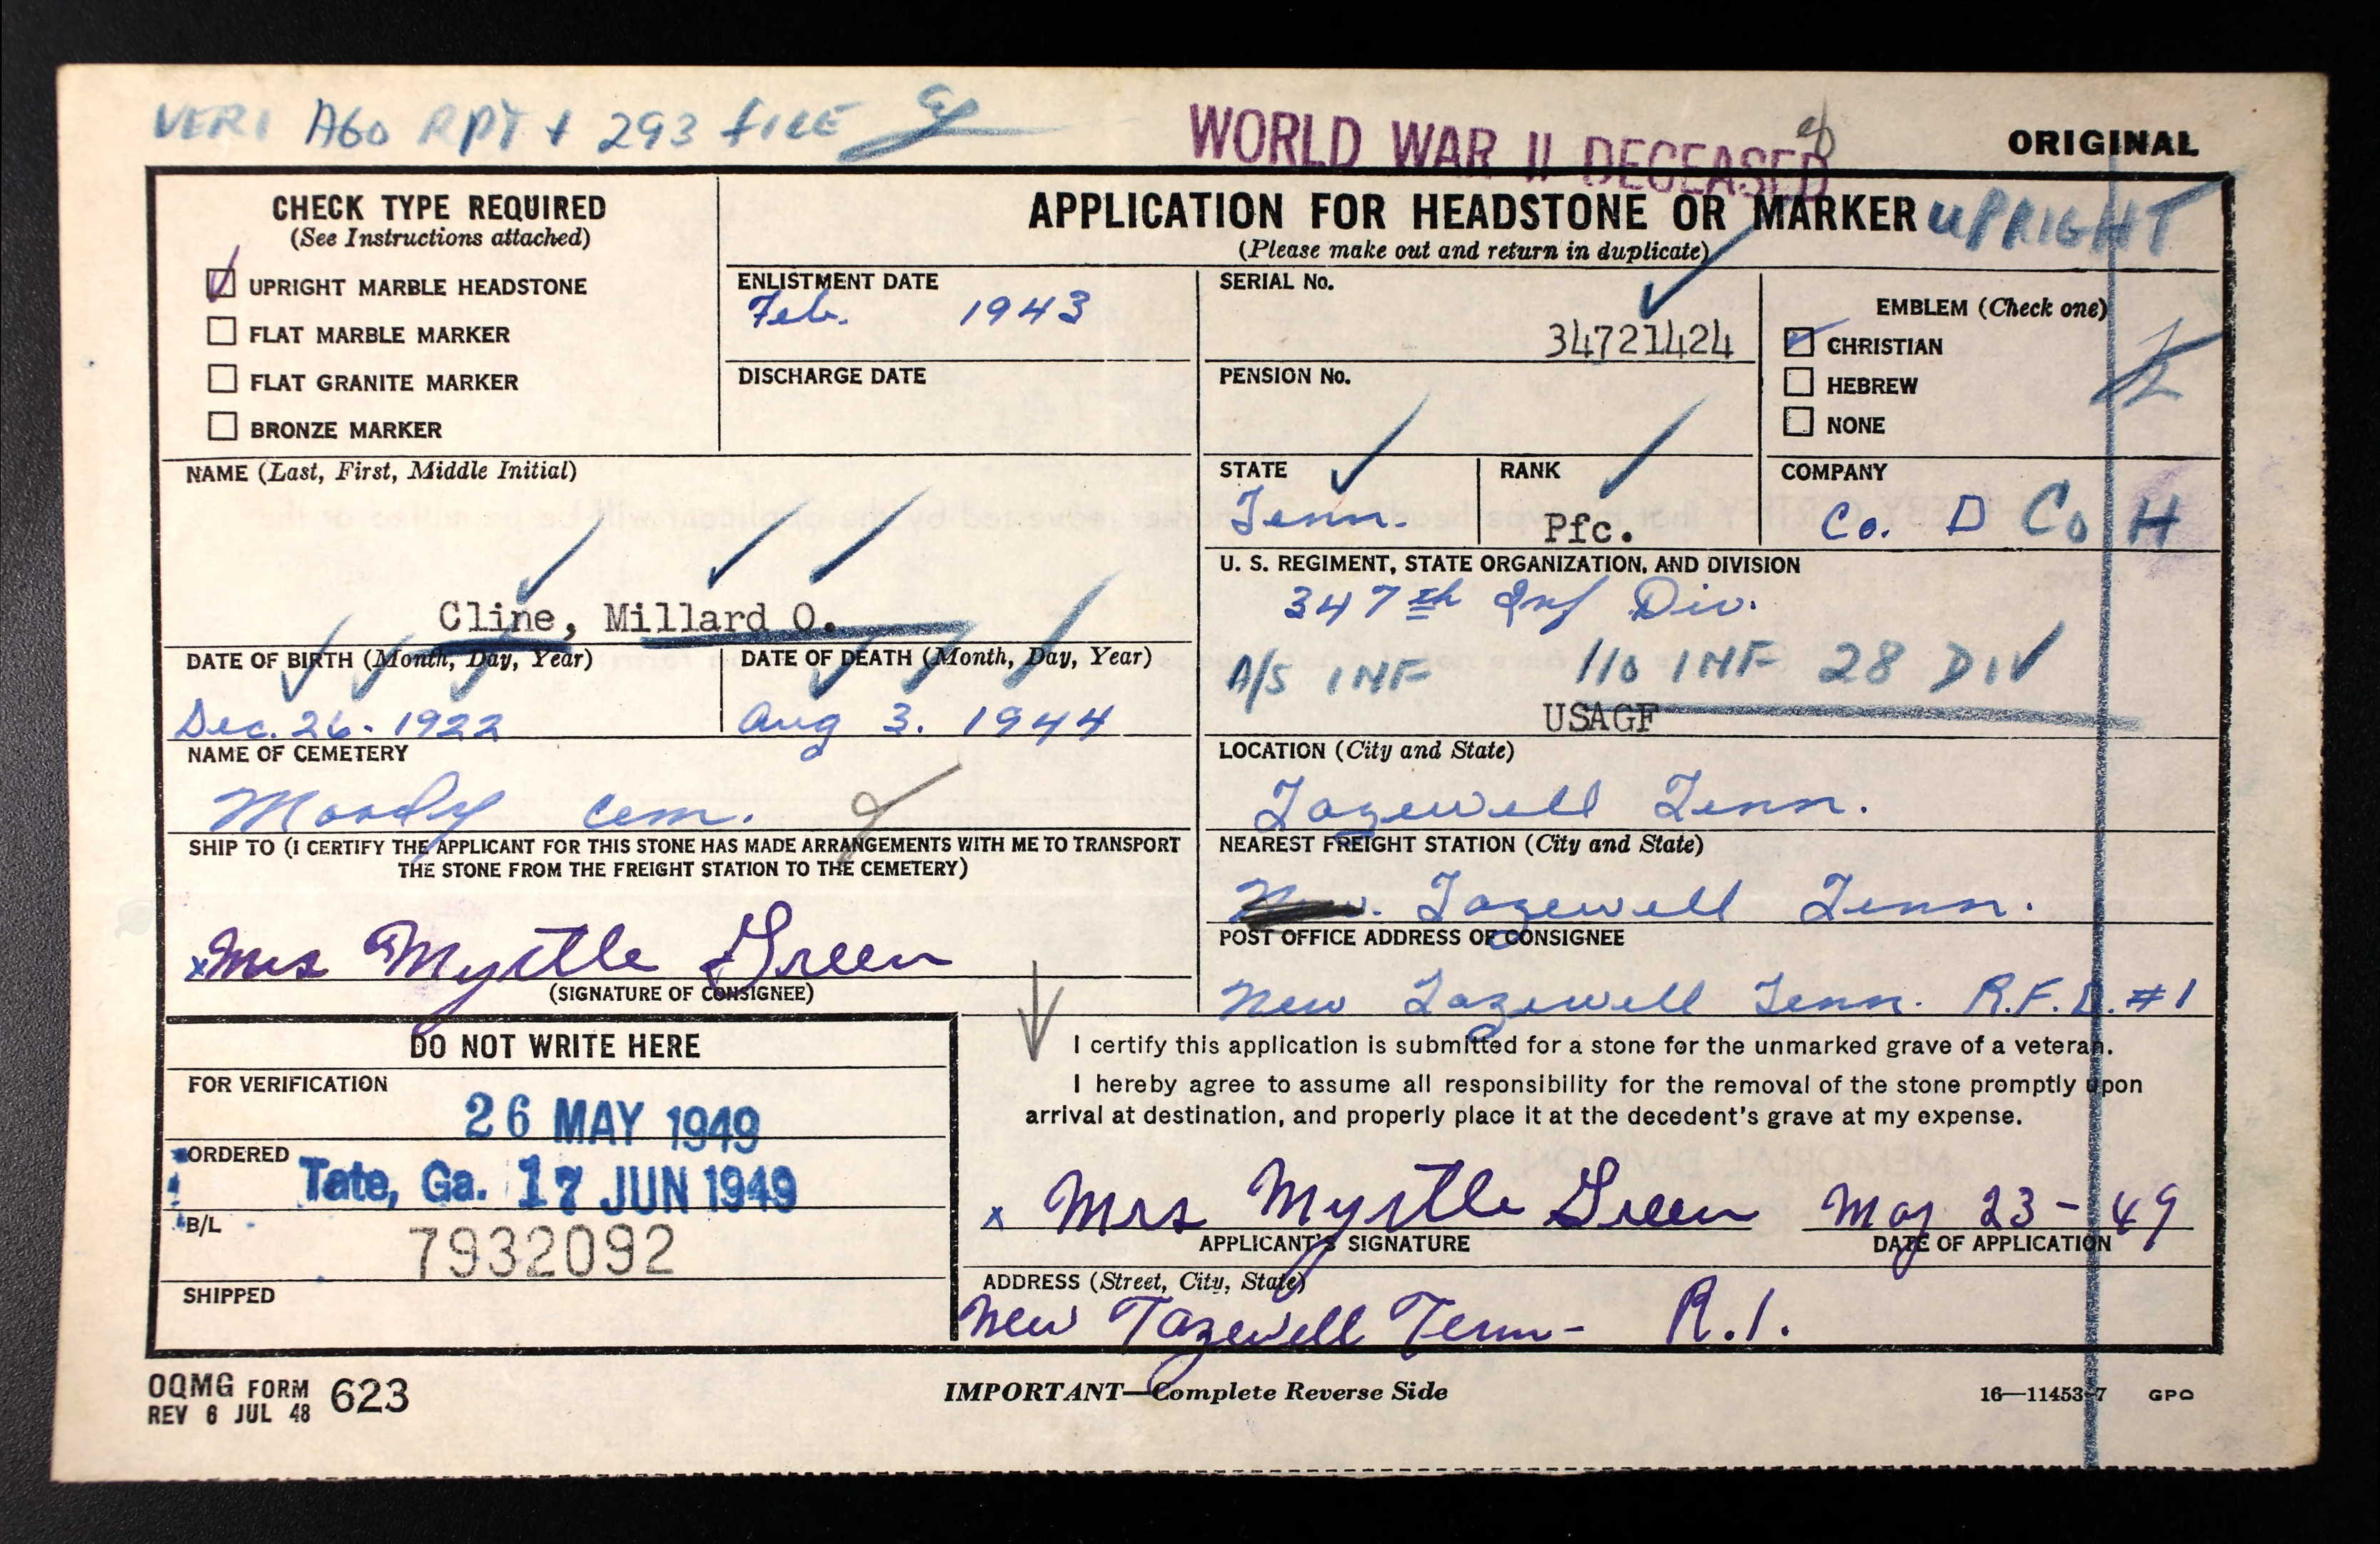 VERI AGO RPT + 293 FILE
WORLD WAR II DECEASED
ORIGINAL
CHECK TYPE REQUIRED
(See Instructions attached)
UPRIGHT MARBLE HEADSTONE
FLAT MARBLE MARKER
FLAT GRANITE MARKER
BRONZE MARKER
APPLICATION FOR HEADSTONE OR MARKER UPRIGHT
(Please make out and return in duplicate)
ENLISTMENT DATE
Feb. 1943
DISCHARGE DATE
SERIAL No.
34721424
PENSION No.
EMBLEM (Check one)
CHRISTIAN
HEBREW
NONE
NAME (Last, First, Middle Initial)
Cline, Millard O.
STATE
Tenn.
RANK
Pfc.
COMPANY
Co. D Co H
U. S. REGIMENT, STATE ORGANIZATION, AND DIVISION
347th Inf Div.
A/S INF 110 INF 28 DIV
USAGF
DATE OF BIRTH (Month, Day, Year)
Dec. 26. 1922
DATE OF DEATH (Month, Day, Year)
Aug 3. 1944
NAME OF CEMETERY
Moody Cem.
LOCATION (City and State)
Tazewell Tenn.
SHIP TO (I CERTIFY THE APPLICANT FOR THIS STONE HAS MADE ARRANGEMENTS WITH ME TO TRANSPORT
THE STONE FROM THE FREIGHT STATION TO THE CEMETERY)
x Mrs Myrtle Green
(SIGNATURE OF CONSIGNEE)
NEAREST FREIGHT STATION (City and State)
Tazewell Tenn.
POST OFFICE ADDRESS OF CONSIGNEE
New Tazewell Tenn. R.F.D. #1
DO NOT WRITE HERE
FOR VERIFICATION
26 MAY 1949
ORDERED
Tate, Ga. 17 JUN 1949
B/L
7932092
SHIPPED
I certify this application is submitted for a stone for the unmarked grave of a veteran.
I hereby agree to assume all responsibility for the removal of the stone promptly upon
arrival at destination, and properly place it at the decedent's grave at my expense.
x Mrs Myrtle Green May 23-49
APPLICANT'S SIGNATURE
DATE OF APPLICATION
ADDRESS (Street, City, State)
New Tazewell Tenn- R.1.
OQMG FORM 623
REV 6 JUL 48
IMPORTANT—Complete Reverse Side
16—11453-7 GPO